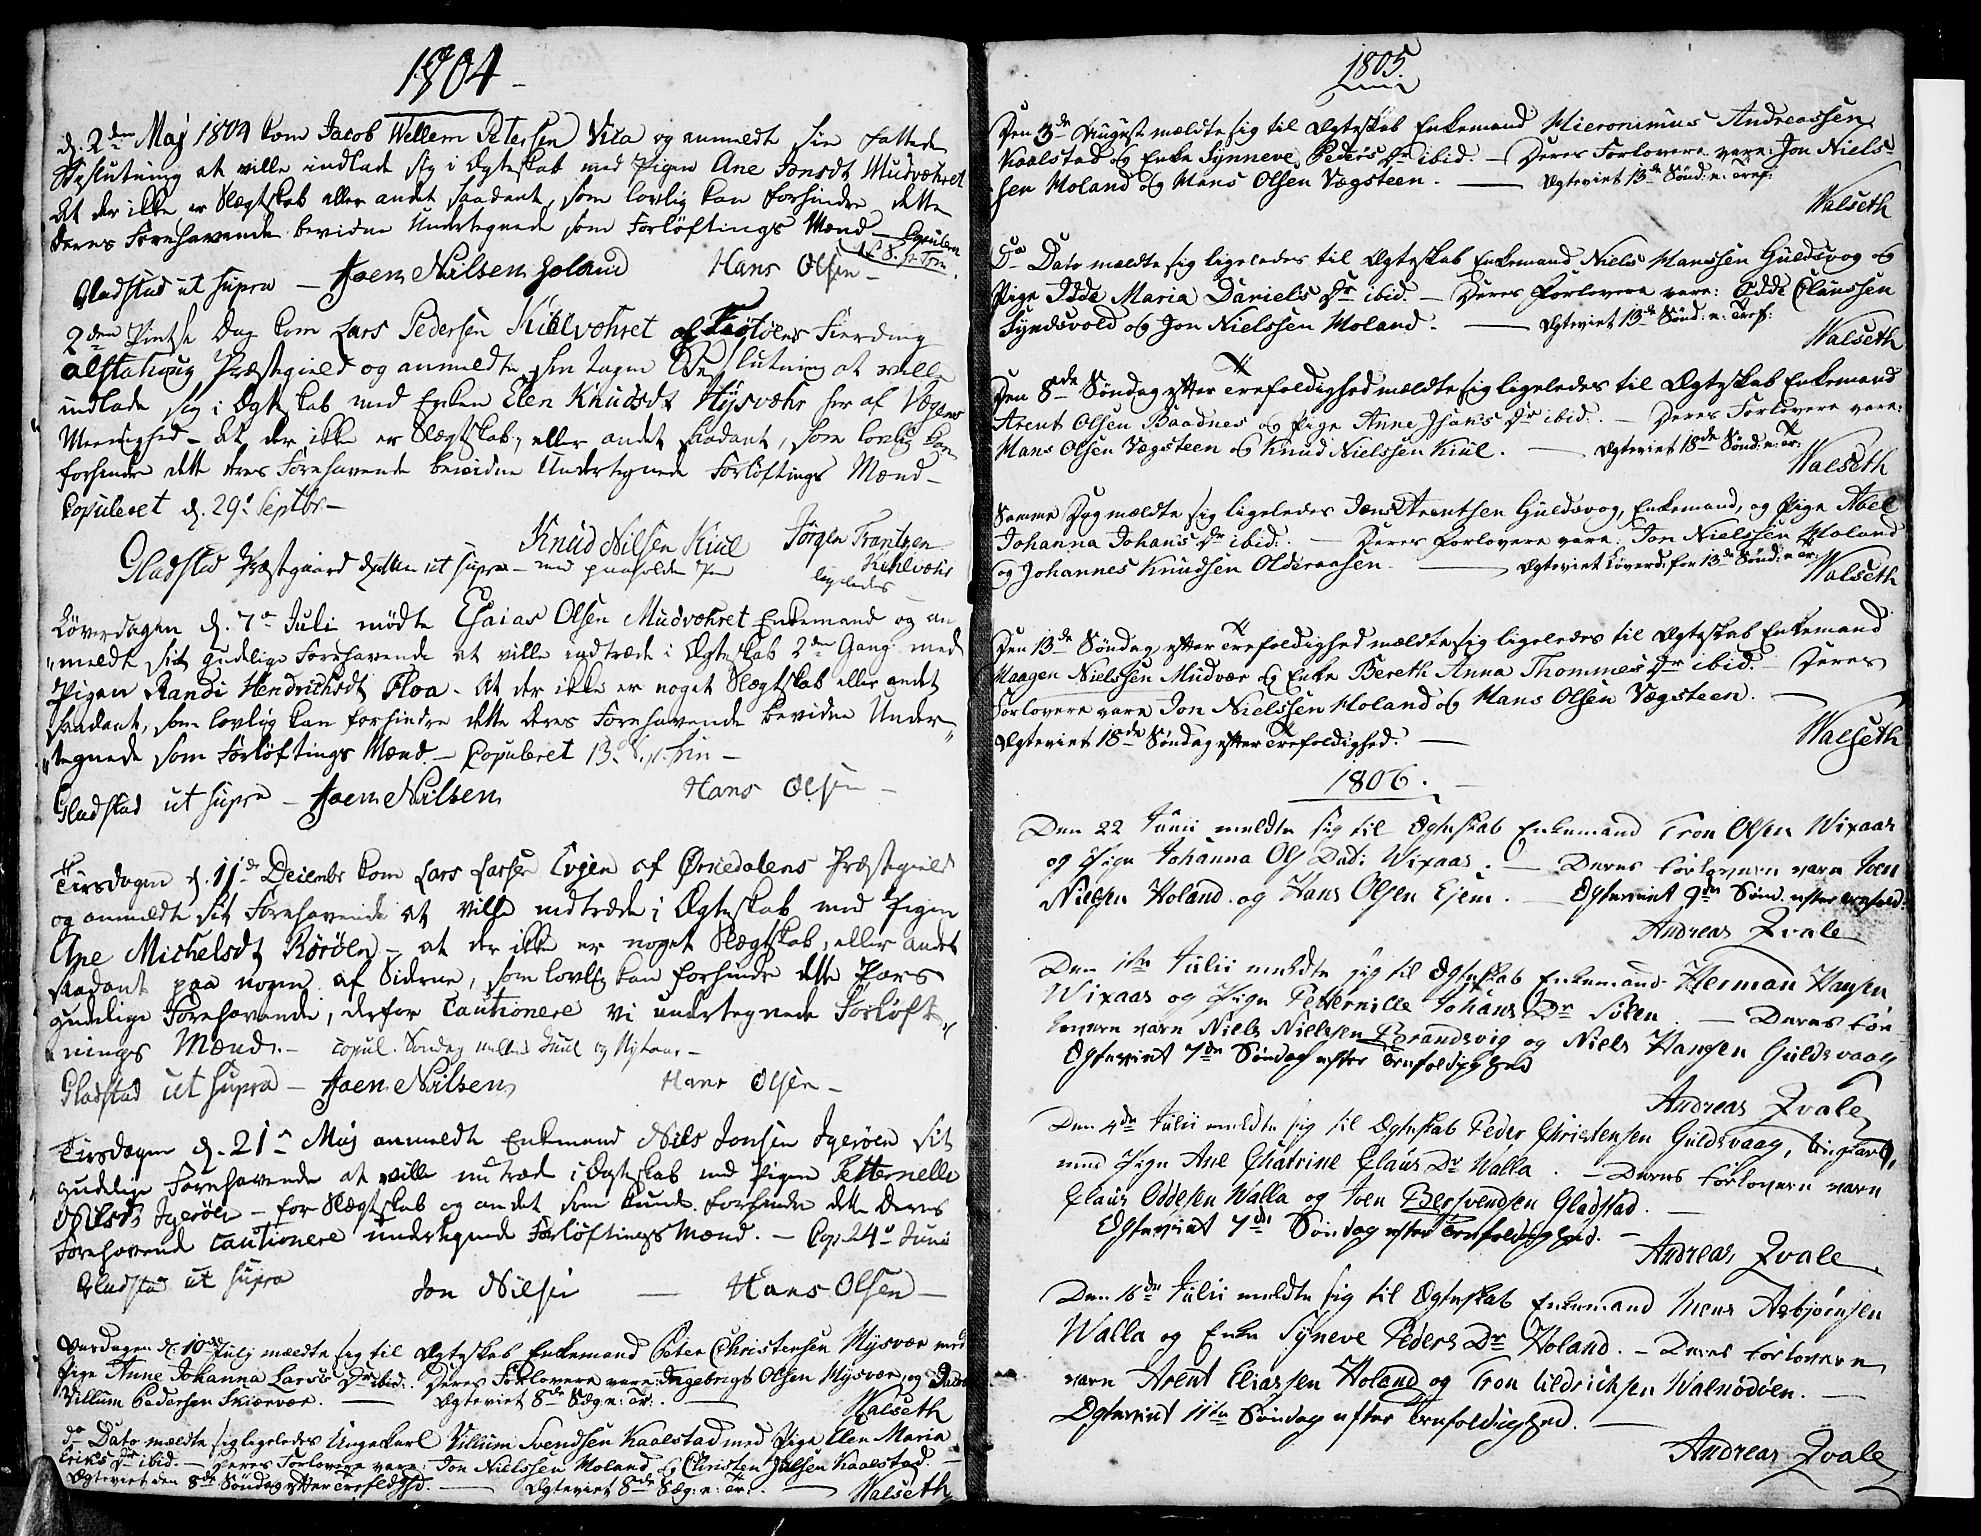 1804
d. 2den Maj 1804 kom Jacob Wellem Petersen Vixa og anmeldte sin fattede
Beslutning at ville indlade sig i Ægteskab med Pigen Ane Jonsdt Mudværet
At der ikke er Slægtskab eller andet saadant, som lovlig kan forhindre dette
deres Forehavende bevidne Undertegnede som Forløftings Mænd – Copuleret
Gladstad ut supra – Joen Nilsen Holand Hans Olsen –
2den Pintse Dag kom Lars Pedersen Kihlvæhret af Fierding
alstahoug Præstegield og anmeldte sin tagen Beslutning at ville
indlade sig i Ægteskab med Enken Elen Knudsdt Hysvæhr her af Vægens
Meenighed – At der ikke er Slægtskab, eller andet saadant, som lovlig kan
forhindre dette deres Forehavende bevidne Undertegnede Forløftings Mænd –
Copuleret d. 29. Septbr –
Knud Nilsen Kiul Jørgen Frantzen
Gladstad Præstegaard Datum ut supra – med paaholden Pen Kihlvæhr
ligeledes
Löverdagen d. 7de Juli mødte Esaias Olsen Mudvæhret Enkemand og an
meldte sit gudelige Forehavende at ville indtræde i Ægteskab 2den Gang med
Pigen Randi Hendrichsdt Floa. At der ikke er noget Slægtskab eller andet
saadant, som lovlig kan forhindre dette deres Forehavende bevidne Under-
tegnede som Forløftings Mænd. – Copuleret 13. S. p. Trin –
Gladstad ut supra – Joen Nilsen Hans Olsen –
Tirsdagen d. 11te Decembr kom Lars Larsen af Ørkedalens Præstegield
og anmeldte sit Forehavende at ville indtræde i Ægteskab med Pigen
Ane Michelsdt Rørøen – at der ikke er noget Slægtskab, eller andet
saadant paa nogen af Siderne, som lovlig kan forhindre dette Pars
gudelige Forehavende, derfor Cautionere vi undertegnede Forløft
nings Mænd. – copul. Søndag mellem Juul og Nytaar –
Gladstad ut supra – Joen Nilsen Hans Olsen –
Tirsdagen d. 21. Maj anmeldte Enkemand Nils Jonsen Igerøen sit
gudelige Forehavende at ville indtræde i Ægteskab med Pigen Petternelle
Nilsdt Igerøen – for Slægtskab og andet som kunde forhindre dette Deres
Forehavende Cautionere undertegnede Forløftings Mænd. – Cop: 24. Junii
Gladstad ut supra Jon Nilsen – Hans Olsen –
Onsdagen d: 10de July mældte sig til Ægteskab Enkemand Peter Christensen Hysvær med
Pige Anne Johanna Larsis Dr ibid. Deres Forlovere vare: Ingebrigt Olsen Hysvær, og Jacob
Villum Pedersen Skiærvær. – Ægteviet 8de Søg: e: Tr: –
Walseth
do Dato mældte sig ligeledes Ungekarl Villum Svendsen Kaalstad med Pige Elen Maria
Eriks Dr ibid. – Deres Forlovere vare: Jon Nielssen Holand og Christen Julsen Kaalstad. –
Ægteviet den 8de Søndag efter Trefoldhd. – Ægteviet 8de Søg: e: Tr: –
Walseth
1805.
Den 3de August mældte sig til Ægteskab Enkemand Hieronimus Andreassen
Kaalstad og Enke Synneve Peders Dr ibid. – Deres Forlovere vare: Jon Niels-
sen Holand og Hans Olsen Vægsteen. – Ægteviet 13de Sönd: e: Tref:
Walseth
Do Dato mældte sig ligeledes til Ægteskab Enkemand Niels Hanssen Guldsvog og
Pige Idde Maria Daniels Dr ibid. – Deres Forlovere vare: Edde Claussen
Syndsvold og Jon Nielssen Holand. – Ægteviet 13de Sönd: e: Tref:
Walseth
Den 8de Søndag efter Trefoldighed mældte sig ligeledes til Ægteskab Enkemand
Arent Olsen Baadnes og Pige Anne Johans Dr ibid. – Deres Forlovere vare:
Hans Olsen Vægsteen og Knud Nielssen Kiul. – Ægteviet 18de Sönd: e: Tr:
Walseth
Samme Dag mældte sig ligeledes Jens Arentsen Guldsvog, Enkemand, og Pige Abel
Johanna Johans Dr ibid: – Deres Forlovere vare: Jon Nielssen Holand
og Johannes Knudsen Olderaasen. – Ægteviet Löverd: for 13de Sönd: e: Tr:
Walseth
Den 13de Söndag efter Trefoldighed mældte sig ligeledes til Ægteskab Enkemand
Haagen Nielssen Mudvær og Enke Bereth Anna Thommes Dr ibid. – Deres
Forlovere vare Jon Nielssen Holand og Hans Olsen Vægsteen. –
Ægteviet 18de Söndag efter Trefoldighed. –
Walseth
1806.
Den 22 Junii meldte sig til Ægteskab Enkemand Tron Olsen Wixaas
og Pige Johanna Ols Datt: Wixaas. – Deres Forlovere vare Joen
Nielsen Holand og Hans Olsen Ejem. – Ægteviet 9de Sönd. efter Trefold:
Andreas Qvale
Den 1te Julii meldte sig til Ægteskab Enkemand Herman Hansen
Wixaas og Pige Petternille Johans Dr Sølen. – Deres For
lovere vare Niels Nielsen Brandsvig og Niels Hansen Guldsvaag
Ægteviet 7de Söndag efter Trefoldighed
Andreas Qvale
Den 4de Julii meldte sig til Ægteskab Peder Christensen Guldsvaag, Ungkarl,
med Pige Ane Chatrine Claus Dr Walla. – Deres Forlovere vare
Claus Oddesen Walla og Joen Bersvendsen Gladstad. –
Ægteviet 7de Söndag efter Trefoldighed. –
Andreas Qvale
Den 16de Julii meldte sig til Ægteskab Enkemand Mens Asbjørnsen
Walla og Enke Syneve Peders Dr Holand. – Deres Forlovere
vare Arent Eliassen Holand og Tron Uldrichsen Walnødøen. –
Ægteviet 11te Söndag efter Trefoldighed. –
Andreas Qvale